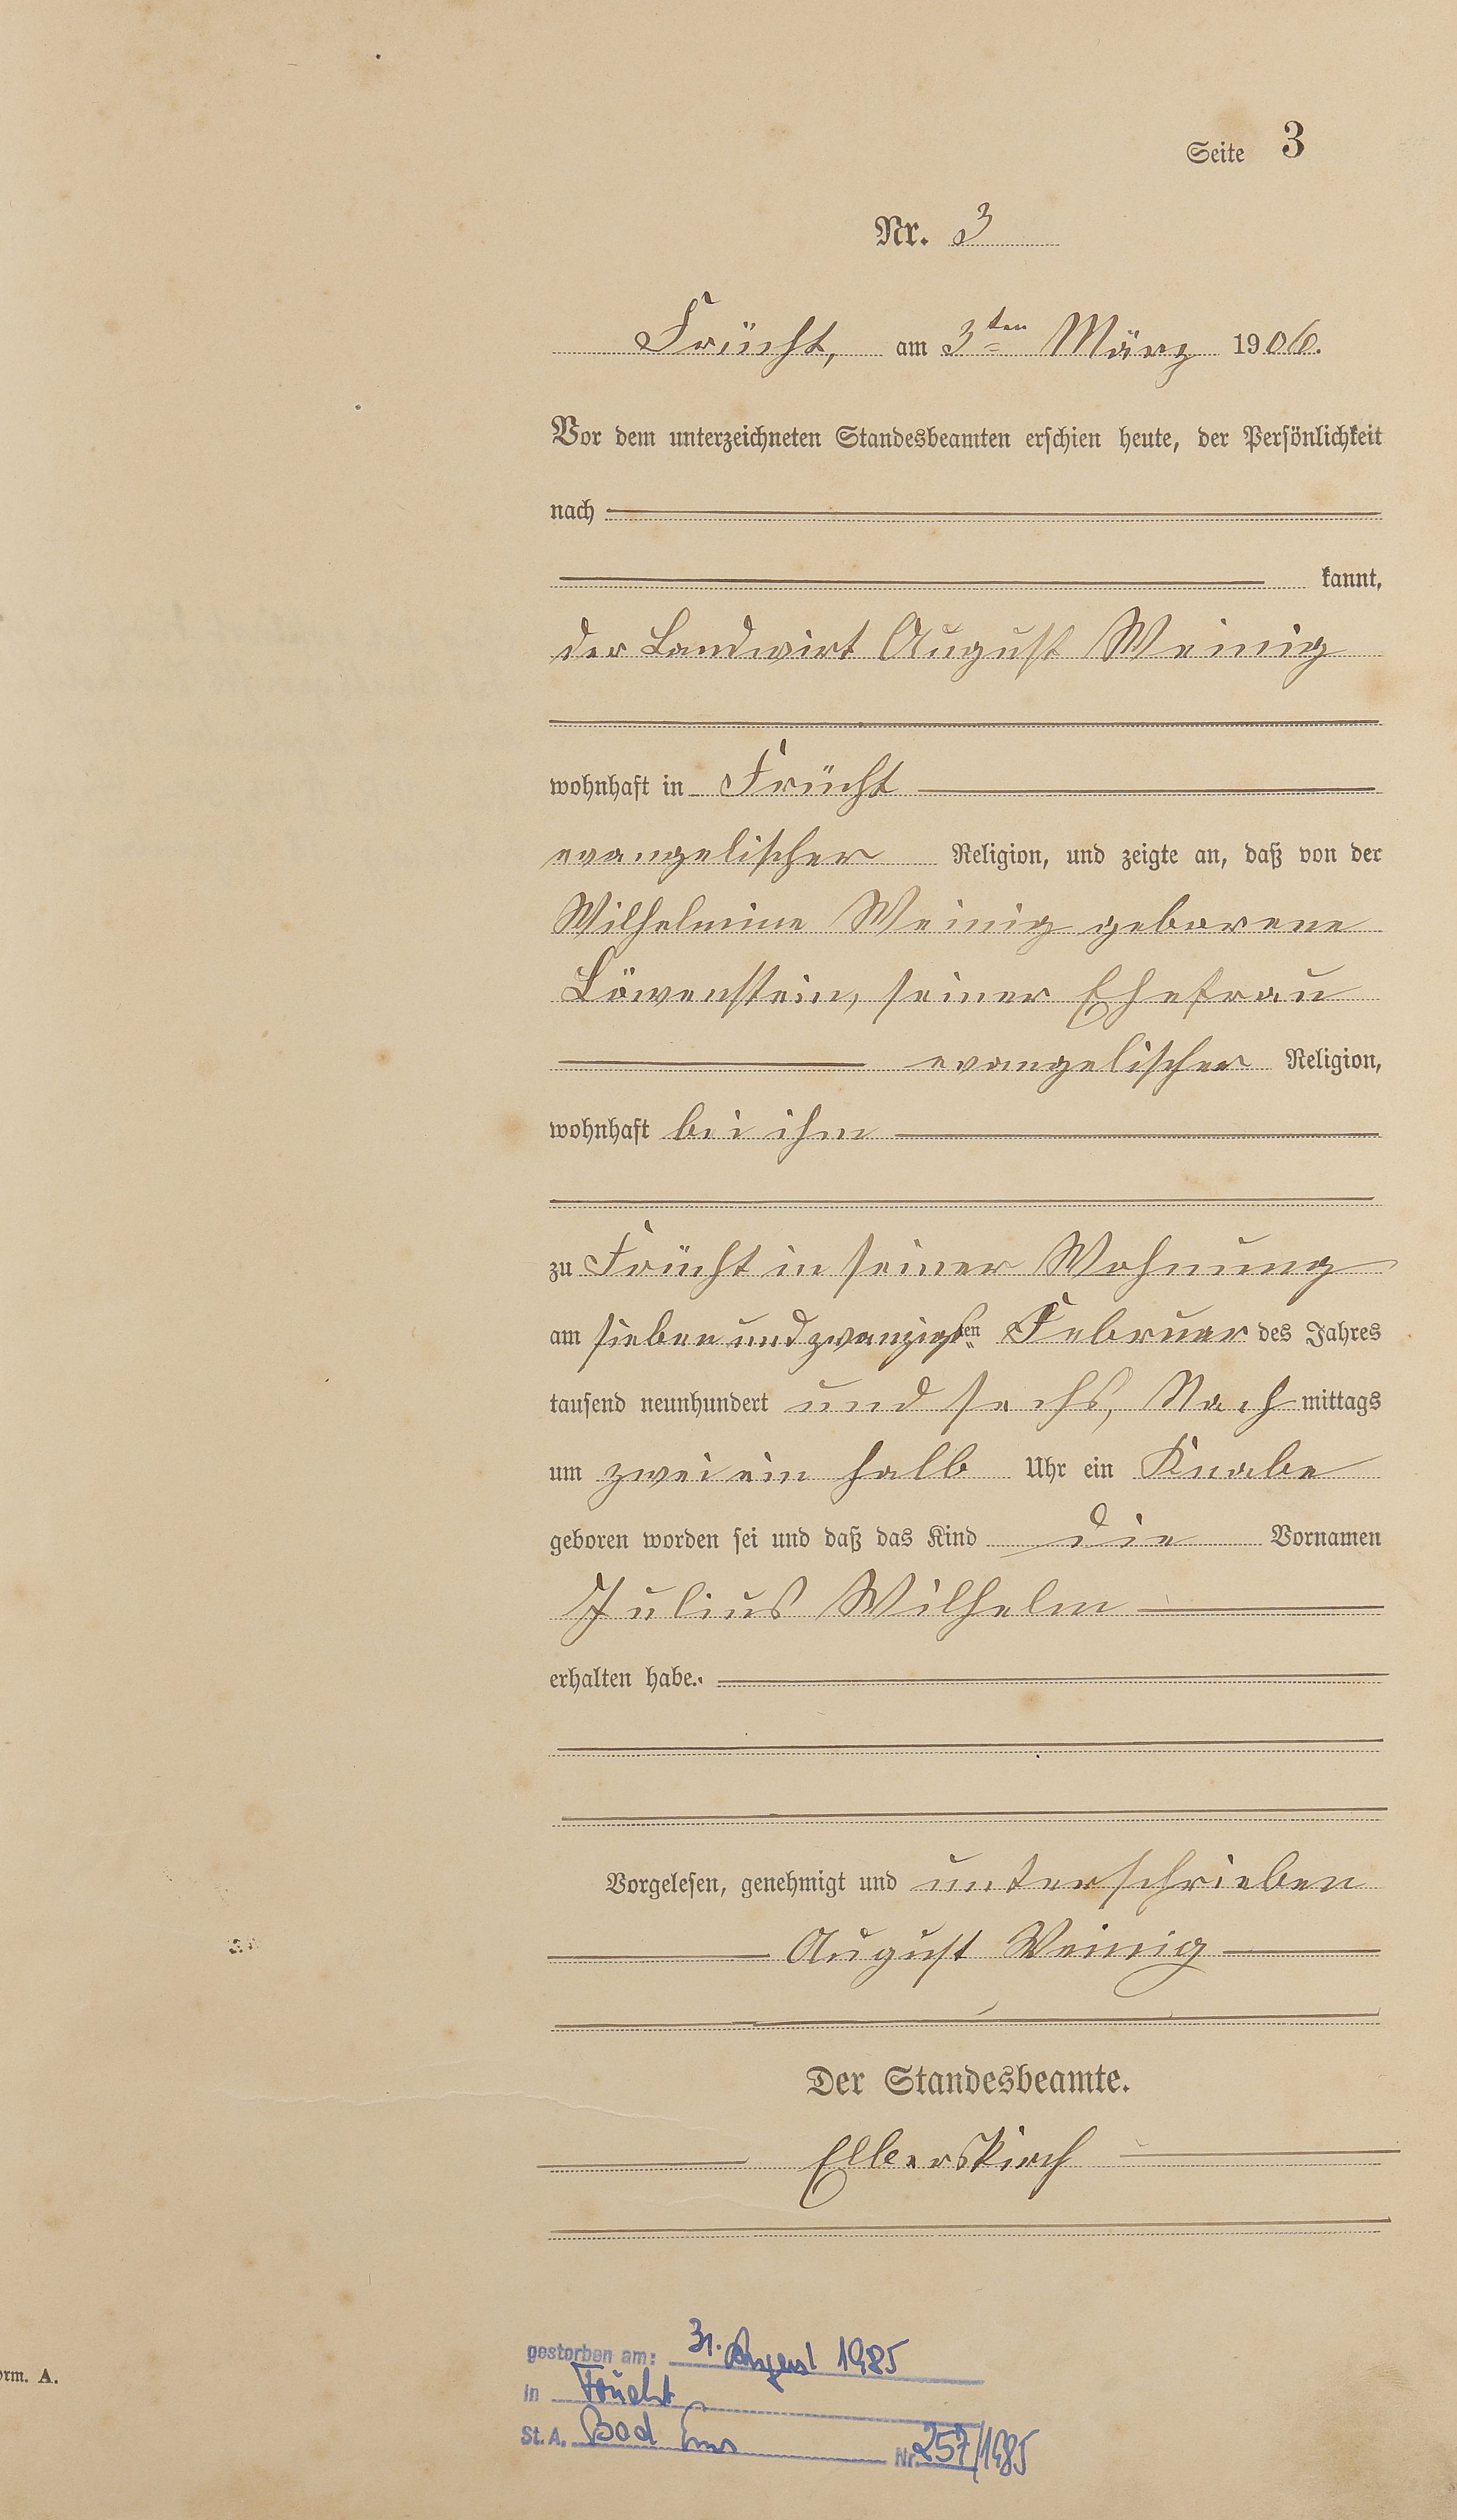 Seite 3
Nr. 3
Frücht, am 3ten März 1906.
Vor dem unterzeichneten Standesbeamten erschien heute, der Persönlichkeit
nach
kannt,
der Landwirt August Weinig
wohnhaft in Frücht
evangelischer Religion, und zeigte an, daß von der
Wilhelmine Weinig geborene
Löwenstein, seiner Ehefrau
evangelischer Religion,
wohnhaft bei ihm
zu Frücht in seiner Wohnung
am siebenundzwanzigsten Februar des Jahres
tausend neunhundert und sechs, Nachmittags
um zwei ein halb Uhr ein Knabe
geboren worden sei und daß das Kind die Vornamen
Julius Wilhelm
erhalten habe.
Vorgelesen, genehmigt und unterschrieben
August Weinig
Der Standesbeamte.
Elberskirch
gestorben am: 31. August 1985
orm. A.
in Frücht
St. A. Bad Ems Nr. 257/1985